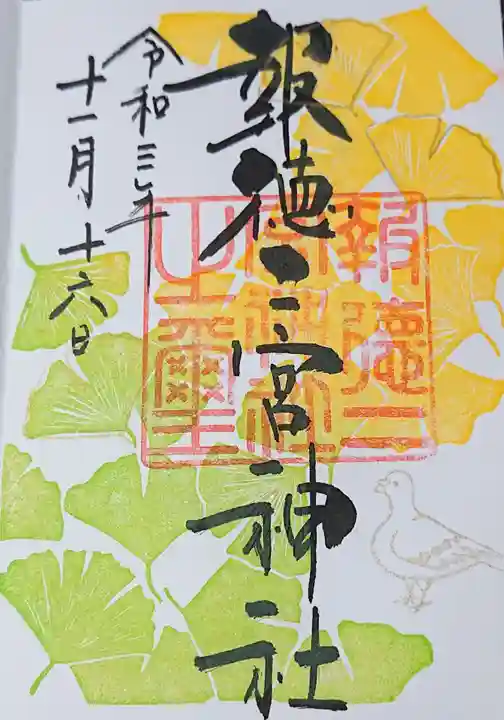 報徳二宮神社
令和三年
十一月十六日
報徳二
宮神社
之璽